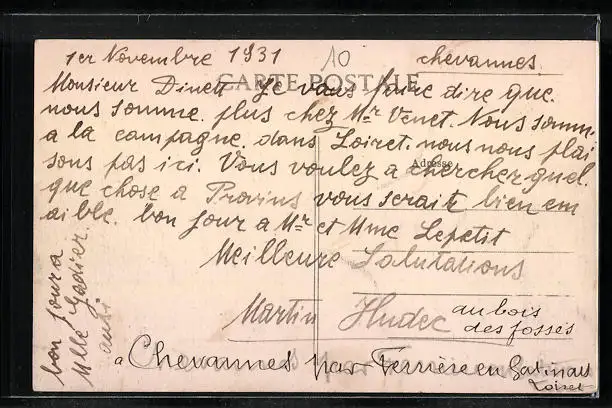 1er Novembre 1931 10 chevannes.
CARTE POSTALE
Monsieur Dinett Je vous faire dire que.
nous somme. plus chez Mr Venet. Nous somme
a la campagne. dans Loiret. nous nous plai
Adresse
sons pas ici. Vous voulez a chercher quel.
que chose a Provins vous serait bien em
aible. bon jour a Mr et Mme Lepetit
Meilleure Salutations
Martin Hudec au bois
des fosses
a Chevannes par Ferrière en Gatinais
Loiret
bon jour a
Mlle Gadier.
aussi